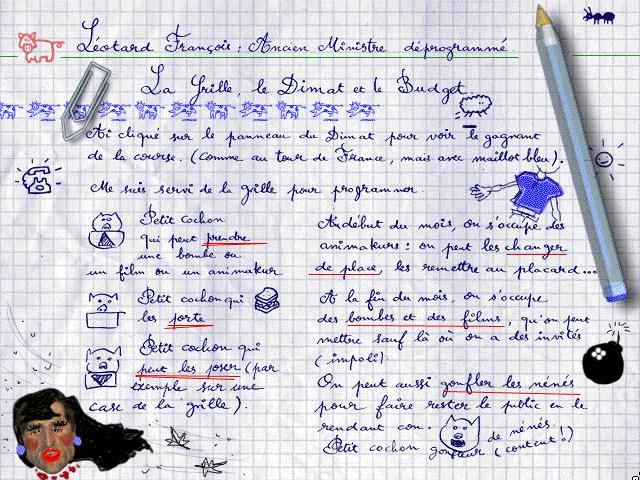 Léotard François : Ancien Ministre déprogrammé.
La Grille, le Dimat et le Budget.
Ai cliqué sur le panneau du Dimat pour voir le gagnant
de la course. (comme au tour de France, mais avec maillot bleu).
Me suis servi de la grille pour programmer.
Petit cochon
qui peut prendre
une bombe ou
un film ou un animateur
Petit cochon qui
les porte
Petit cochon qui
peut les poser (par
exemple sur une
case de la grille).
Au début du mois, on s'occupe des
animateurs : on peut les changer
de place, les remettre au placard...
A la fin du mois, on s'occupe
des bombes et des films, qu'on peut
mettre sauf là où on a des invités
(impoli)
On peut aussi gonfler les nénés
pour faire rester le public en le
rendant con.
Petit cochon gonfleur de nénés (content !)